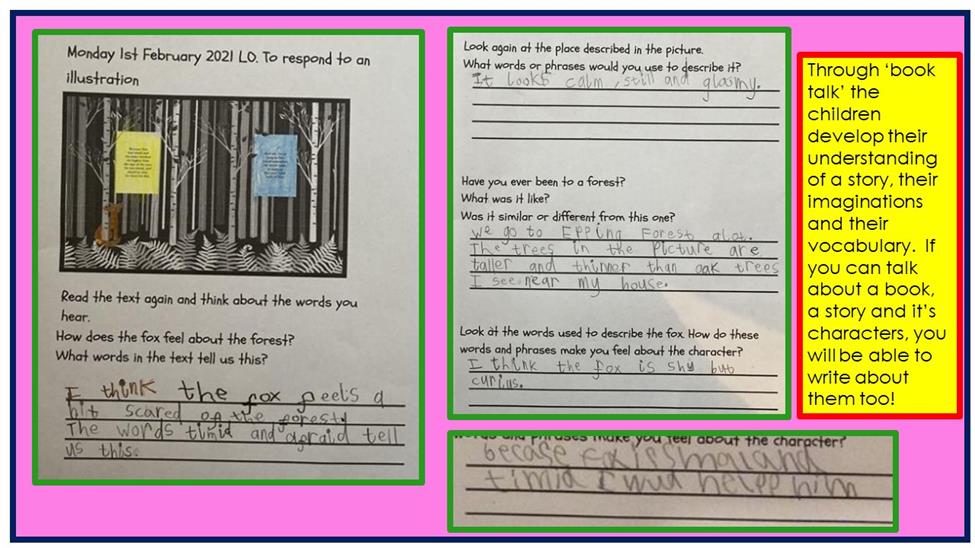 Monday 1st February 2021 L.O. To respond to an
illustration
Read the text again and think about the words you
hear.
How does the fox feel about the forest?
What words in the text tell us this?
I think the fox feels a
bit scared of the forest.
The words timid and afraid tell
us this.
Look again at the place described in the picture.
What words or phrases would you use to describe it?
It looks calm, still and gloomy.
Have you ever been to a forest?
What was it like?
Was it similar or different from this one?
We go to Epping Forest alot.
The trees in the picture are
taller and thinner than oak trees
I see near my house.
Look at the words used to describe the fox. How do these
words and phrases make you feel about the character?
I think the fox is shy but
curius.
words and phrases make you feel about the character?
becase fox is smal and
timid I wud helpp him
Through ‘book
talk’ the
children
develop their
understanding
of a story, their
imaginations
and their
vocabulary. If
you can talk
about a book,
a story and it’s
characters, you
will be able to
write about
them too!